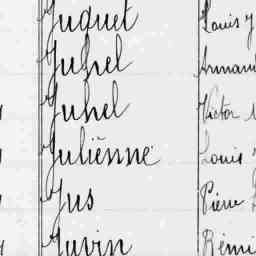 Juquet Louis J
Juhel Armand
Juhel Victor
Juliënne Louis
Jus Pierre
Juvin Rémi